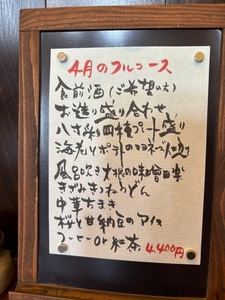 4月のフルコース
食前酒(ご希望の方)
お造り盛り合わせ
八寸彩り四種プレート盛り
海老とポテトのココネベル焼
風呂吹き大根の味噌田楽
きざみきつねうどん
中華ちまき
桜と甘納豆のアイス
コーヒーor紅茶
4,400円